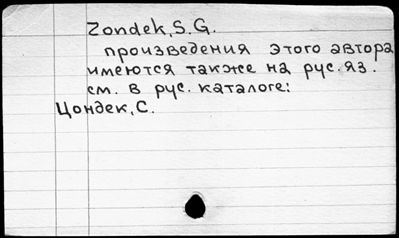 Zondek, S. G.
произведения этого автора
имеются также на рус. яз.
см. в рус. каталоге:
Цондек, С.